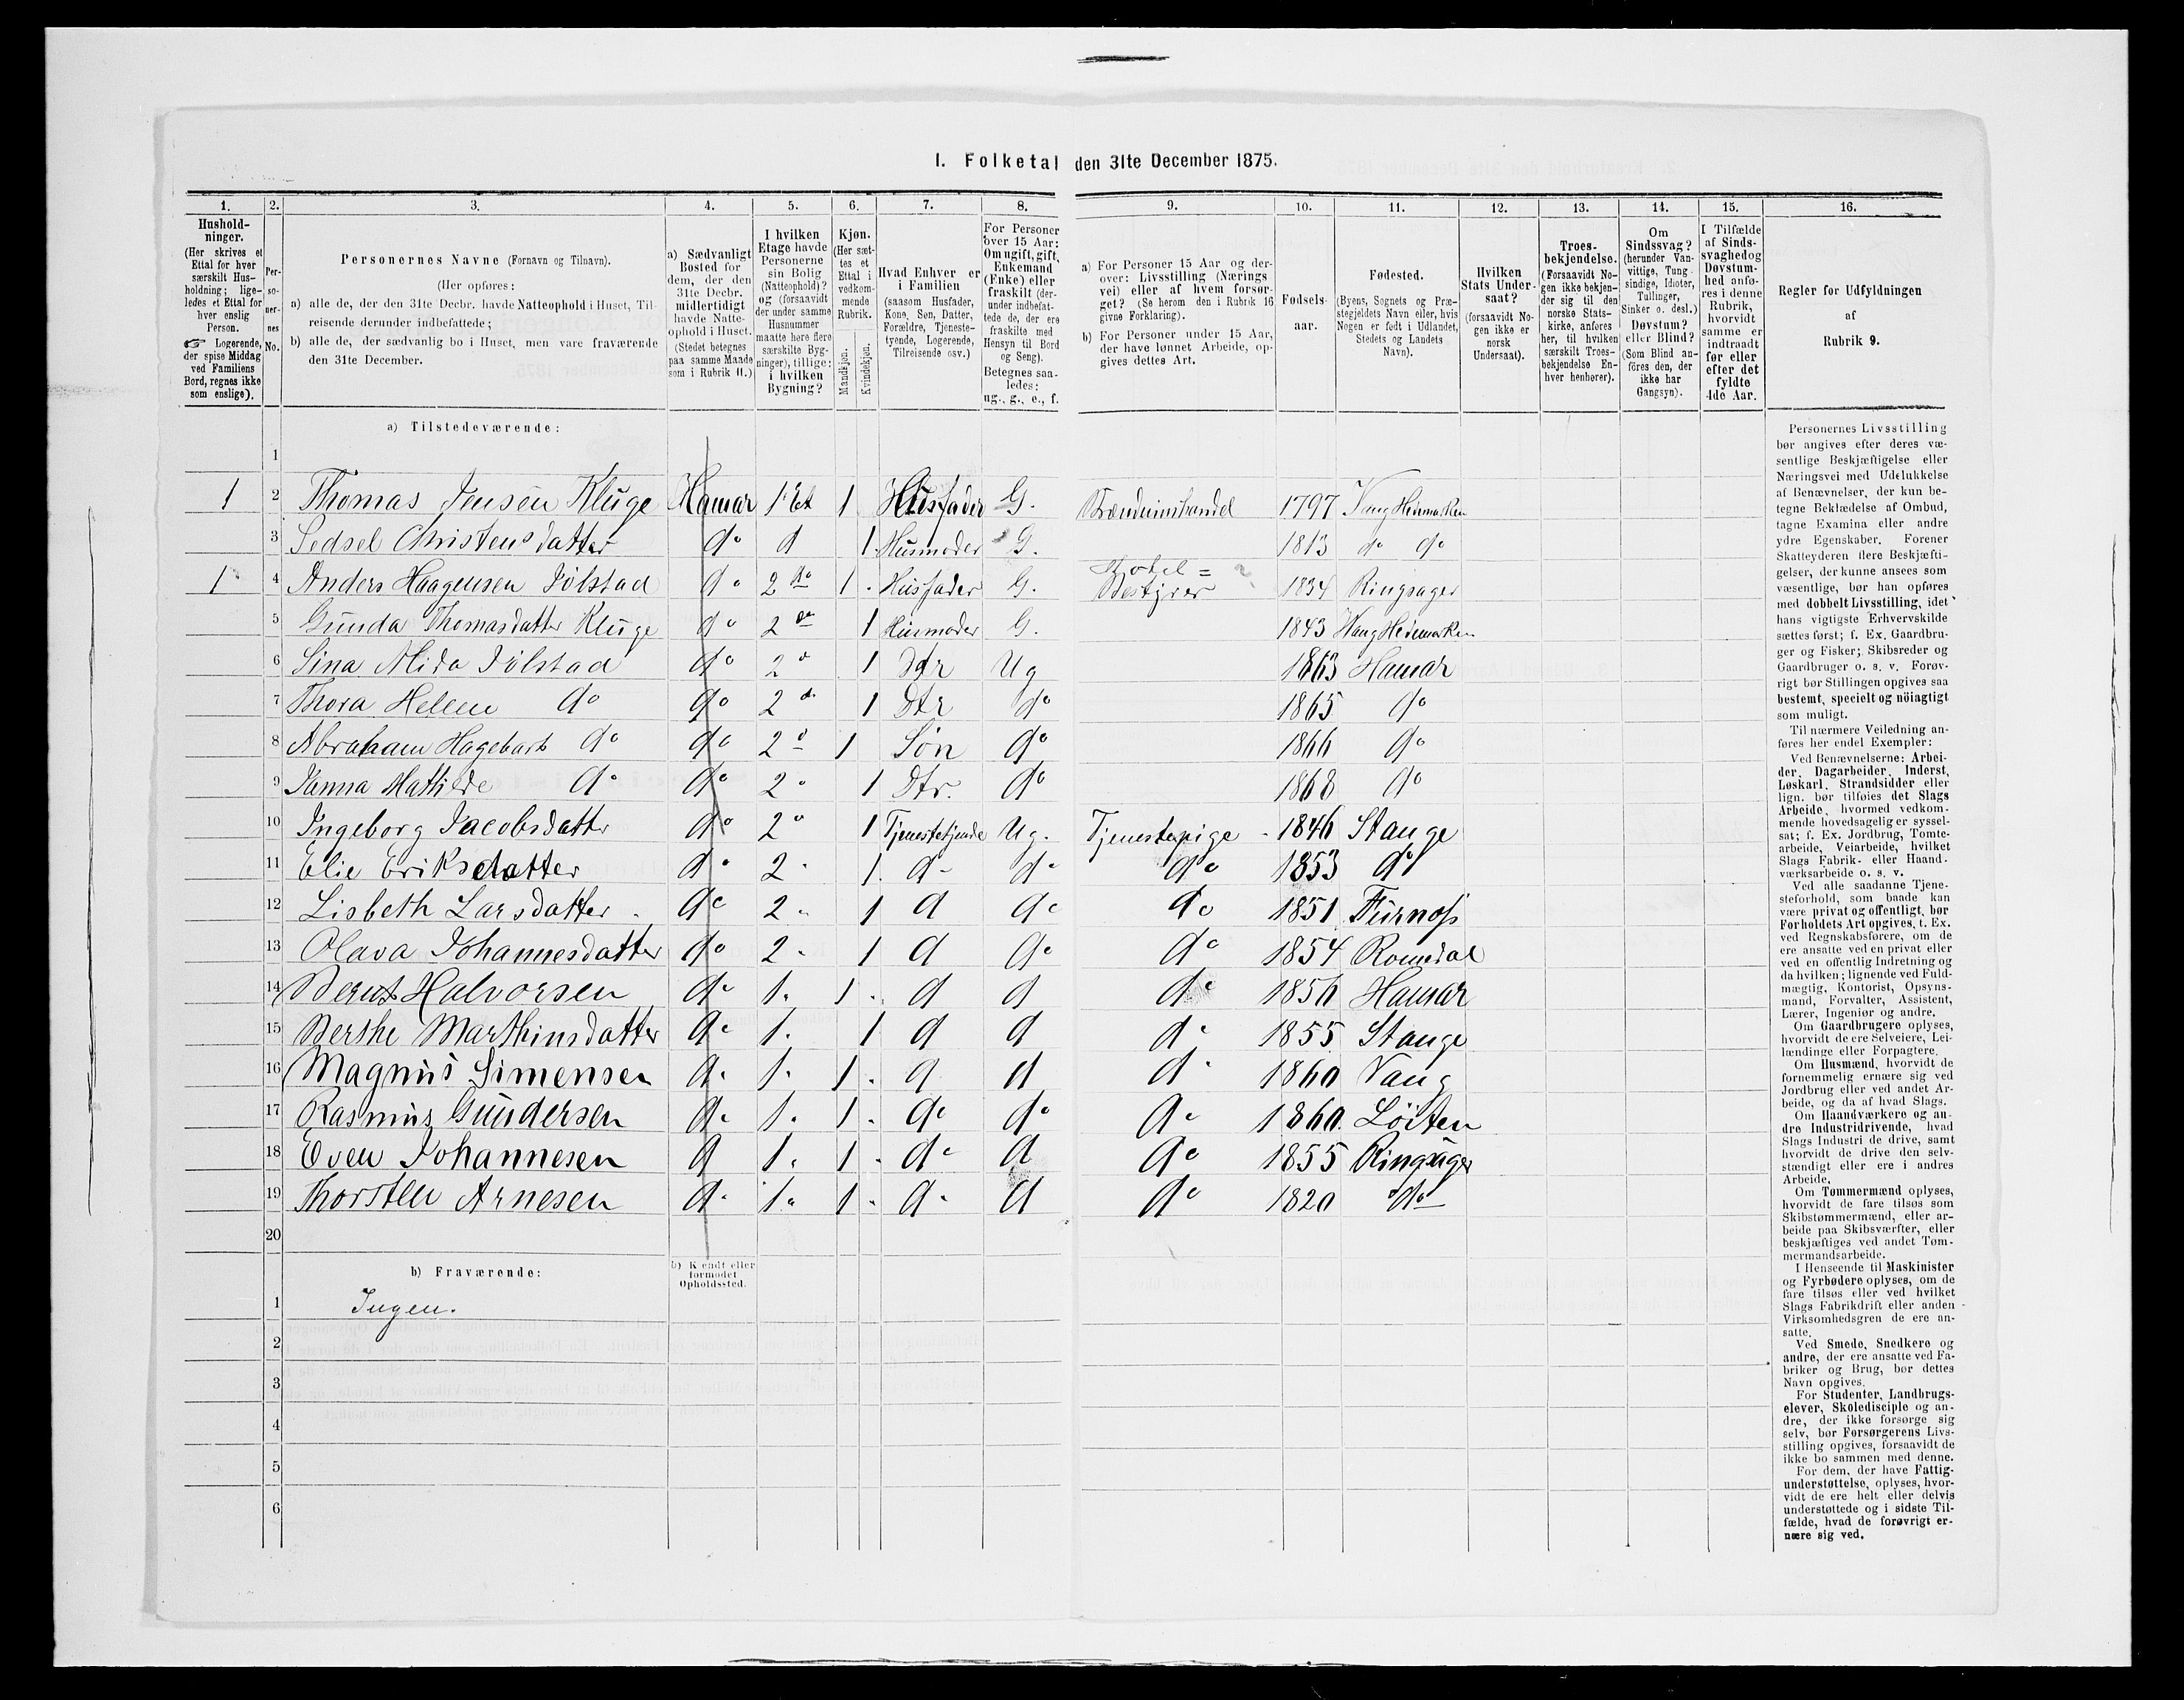 I. Folketal den 31te December 1875.
1. 2. 3. 4. 5. 6. 7. 8. 9. 10. 11. 12. 13. 14. 15. 16.
Hushold-
ninger.
(Her skrives et
Ettal for hver
særskilt Hus-
holdning; lige-
ledes et Ettal for
hver enslig
Person.
☞ Logerende,
der spise Middag
ved Familiens
Bord, regnes ikke
som enslige).
Per-
so-
ner-
nes
No.
Personernes Navne (Fornavn og Tilnavn).
(Her opføres:
a) alle de, der den 31te Decbr. havde Natteophold i Huset, Til-
reisende derunder indbefattede;
b) alle de, der sædvanlig bo i Huset, men vare fraværende
den 31te December.
a) Sædvanligt
Bosted for
dem, der den
31te Decbr.
midlertidigt
havde Natte-
ophold i Huset.
(Stedet betegnes
paa samme Maade
som i Rubrik 11.)
I hvilken
Etage havde
Personerne
sin Bolig
(Natteophold)?
og (forsaavidt
der under samme
Husnummer
maatte høre flere
særskilte Byg-
ninger), tillige:
i hvilken
Bygning?
Kjøn.
(Her sæt-
tes et
Ettal i
vedkom-
mende
Rubrik.
Mandkjøn.
Kvindekjøn.
Hvad Enhver er
i Familien
(saasom Husfader,
Kone, Søn, Datter,
Forældre, Tjeneste-
tyende, Logerende,
Tilreisende osv.)
For Personer
over 15 Aar:
Om ugift, gift,
Enkemand
(Enke) eller
fraskilt (der-
under indbefat-
tede de, der ere
fraskilte med
Hensyn til Bord
og Seng).
Betegnes saa-
ledes:
ug., g., e., f.
a) For Personer 15 Aar og der-
over: Livsstilling (Nærings
vei) eller af hvem forsør-
get? (Se herom den i Rubrik 16
givne Forklaring).
b) For Personer under 15 Aar,
der have lønnet Arbeide, op-
gives dettes Art.
Fødsels-
aar.
Fødested.
(Byens, Sognets og Præ-
stegjeldets Navn eller, hvis
Nogen er født i Udlandet,
Stedets og Landets
Navn).
Hvilken
Stats Under-
saat?
(forsaavidt No-
gen ikke er
norsk
Undersaat).
Troes-
bekjendelse.
(Forsaavidt No-
gen ikke bekjen-
der sig til den
norske Stats-
kirke, anføres
her, til hvilken
særskilt Troes-
bekjendelse En-
hver henhører).
Om
Sindssvag?
(herunder Van-
vittige, Tung-
sindige, Idioter,
Tullinger,
Sinker o. desl.)
Døvstum?
eller Blind?
(Som Blind an-
føres den, der
ikke har
Gangsyn).
I Tilfælde
af Sinds-
svaghed og
Døvstum-
hed anfø-
res i denne
Rubrik,
hvorvidt
samme er
indtraadt
før eller
efter det
fyldte
4de Aar.
Regler for Udfyldningen
af
Rubrik 9.
a) Tilstedeværende:
1
1 2 Thomas Jensen Kluge Hamar 1 Et 1 Husfader G. Brændeviinshandel 1797 Vang Hedemarken
3 Sedsel Christensdatter do d 1 Husmoder G. 1813 do do
1 4 Anders Haagensen Jølstad do 2 do 1 Husfader G. Hotel= Bestyrer 1834 Ringsager
5 Gunda Thomasdatter Kluge do 2 do 1 Husmoder G. 1843 Vang Hedemarken
6 Sina Alida Jølstad do 2 d 1 Dtr Ug 1863 Hamar
7 Thora Helene do do 2 d. 1 Dtr do 1865 do
8 Abraham Hagebart do do 2 d 1 Søn do 1866 do
9 Janna Mathilde do do 2 " 1 Dtr. do 1868 do
10 Ingeborg Jacobsdatter do 2 " 1 Tjenestetjende Ug. Tjenestepige 1846 Stange
11 Elie Eriksdatter do 2 " 1 d- do do 1853 do
12 Lisbeth Larsdatter do 2 " 1 d do do 1851 Furnæs
13 Olava Johannesdatter do 2 " 1 d do do 1854 Romedal
14 Bernt Halvorsen do 1 " 1 d d do 1856 Hamar
15 Berthe Marthinsdatter do 1 " 1 d d do 1855 Stange
16 Magnus Simensen do 1 " 1 d d d 1860 Vang
17 Rasmus Gundersen do 1 " 1 do do do 1860 Löiten
18 Even Johannesen d 1 " 1 do d do 1855 Ringsager
19 Thorsten Arnesen do 1 " 1 do d do 1820 do
20
b) Fraværende:
b) Kjendt eller
formodet
Opholdssted.
1 Ingen.
2
3
4
5
6
Personernes Livsstilling
bør angives efter deres væ-
sentlige Beskjæftigelse eller
Næringsvei med Udelukkelse
af Benævnelser, der kun be-
tegne Beklædelse af Ombud,
tagne Examina eller andre
ydre Egenskaber. Forener
Skatteyderen flere Beskjæfti-
gelser, der kunne ansees som
væsentlige, bør han opføres
med dobbelt Livsstilling, idet
hans vigtigste Erhvervskilde
sættes først; f. Ex. Gaardbru-
ger og Fisker; Skibsreder og
Gaardbruger o. s. v. Forøv-
rigt bør Stillingen opgives saa
bestemt, specielt og nöiagtigt
som muligt.
Til nærmere Veiledning an-
føres her endel Exempler:
Ved Benævnelserne: Arbei-
der, Dagarbeider, Inderst,
Løskarl, Strandsidder eller
lign. bør tilføies det Slags
Arbeide, hvormed vedkom-
mende hovedsagelig er syssel-
sat; f. Ex. Jordbrug, Tomte-
arbeide, Veiarbeide, hvilket
Slags Fabrik- eller Haand-
værksarbeide o. s. v.
Ved alle saadanne Tjene-
steforhold, som baade kan
være privat og offentligt, bør
Forholdets Art opgives, t. Ex.
ved Regnskabsførere, om de
ere ansatte ved en privat eller
ved en offentlig Indretning og
da hvilken; lignende ved Fuld-
mægtig, Kontorist, Opsyns-
mand, Forvalter, Assistent,
Lærer, Ingeniør og andre.
Om Gaardbrugere oplyses,
hvorvidt de ere Selveiere, Lei-
lændinge eller Forpagtere.
Om Husmænd, hvorvidt de
fornemmelig ernære sig ved
Jordbrug eller ved andet Ar-
beide, og da af hvad Slags.
Om Haandværkere og an-
dre Industridrivende, hvad
Slags Industri de drive, samt
hvorvidt de drive den selv-
stændigt eller ere i andres
Arbeide.
Om Tømmermænd oplyses,
hvorvidt de fare tilsøs som
Skibstømmermænd, eller ar-
beide paa Skibsværfter, eller
beskjæftiges ved andet Tøm-
mermandsarbeide.
I Henseende til Maskinister
og Fyrbødere oplyses, om de
fare tilsøs eller ved hvilket
Slags Fabrikdrift eller anden
Virksomhedsgren de ere an-
satte.
Ved Smede, Snedkere og
andre, der ere ansatte ved Fa-
briker og Brug, bør dettes
Navn opgives.
For Studenter, Landbrugs-
elever, Skoledisciple og an-
dre, der ikke forsørge sig
selv, bør Forsørgerens Livs-
stilling opgives, forsaavidt de
ikke bo sammen med denne.
For dem, der have Fattig-
understøttelse, oplyses, hvor-
vidt de ere helt eller delvis
understøttede og i sidste Til-
fælde, hvad de forøvrigt er-
nære sig ved.